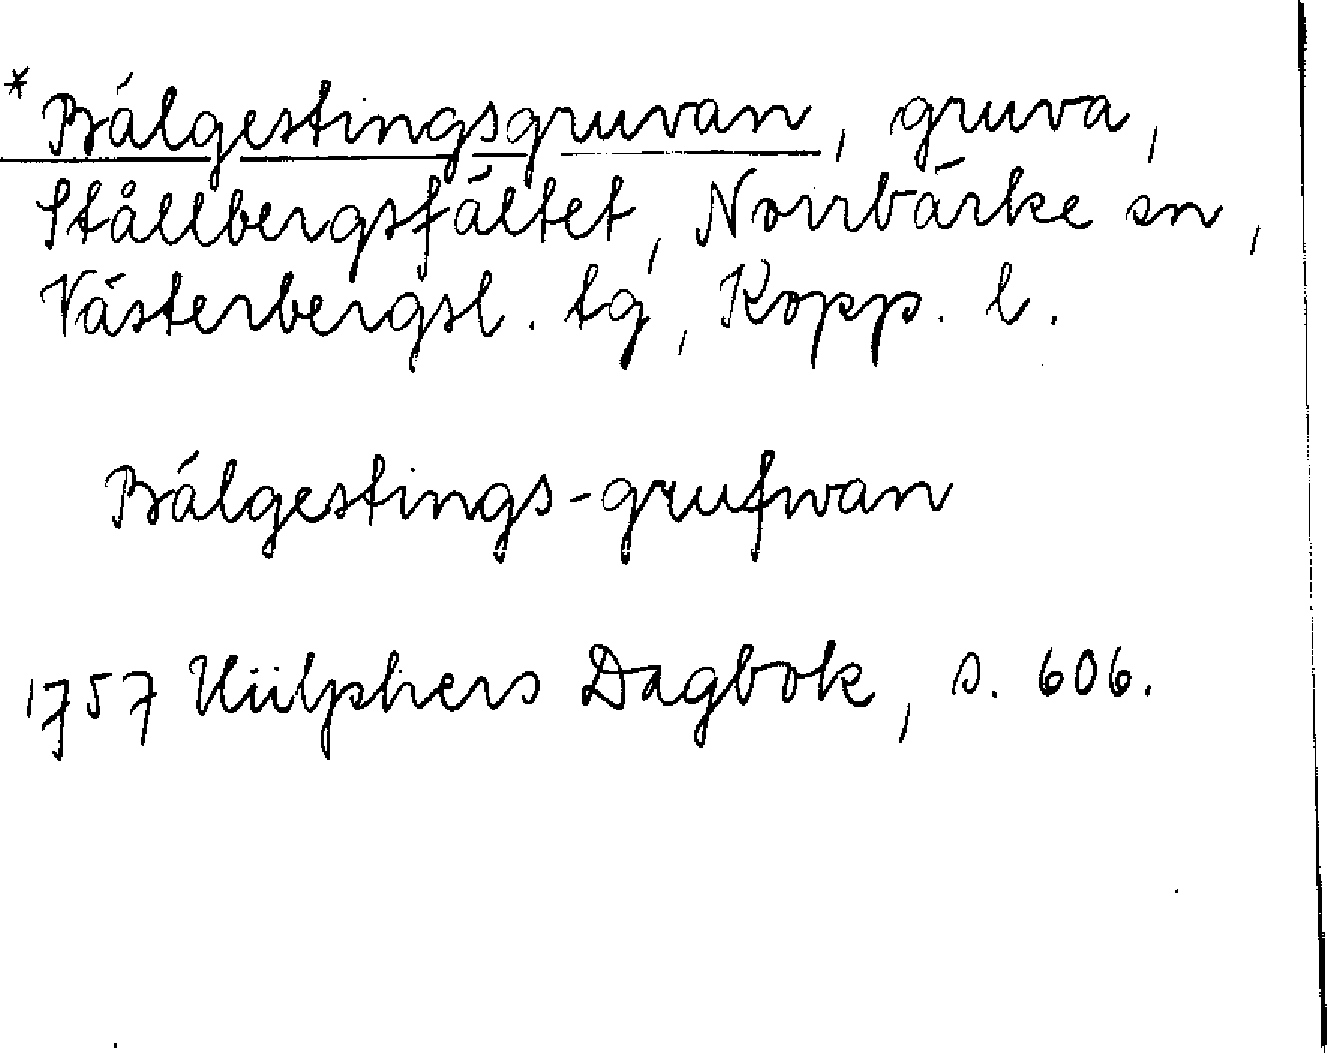 * Bälgestingsgruvan, gruva,
Stållbergsfältet, Norrbärke sn,
Västerbergsl. tg, Kopp. l.
Bälgestings-grufwan
1757 Hülphers Dagbok, s. 606.